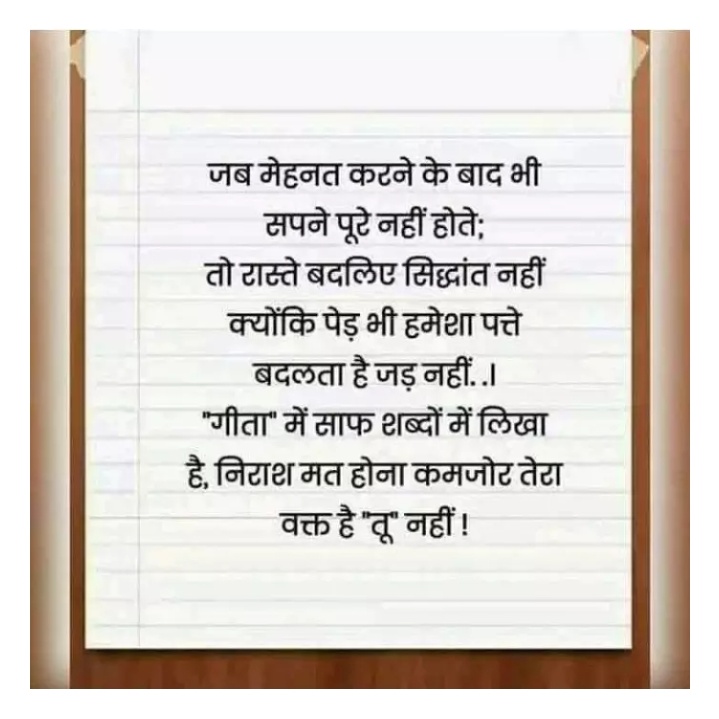 जब मेहनत करने के बाद भी
सपने पूरे नहीं होते;
तो रास्ते बदलिए सिद्धांत नहीं
क्योंकि पेड़ भी हमेशा पत्ते
बदलता है जड़ नहीं. .।
"गीता" में साफ शब्दों में लिखा
है, निराश मत होना कमजोर तेरा
वक्त है "तू" नहीं !